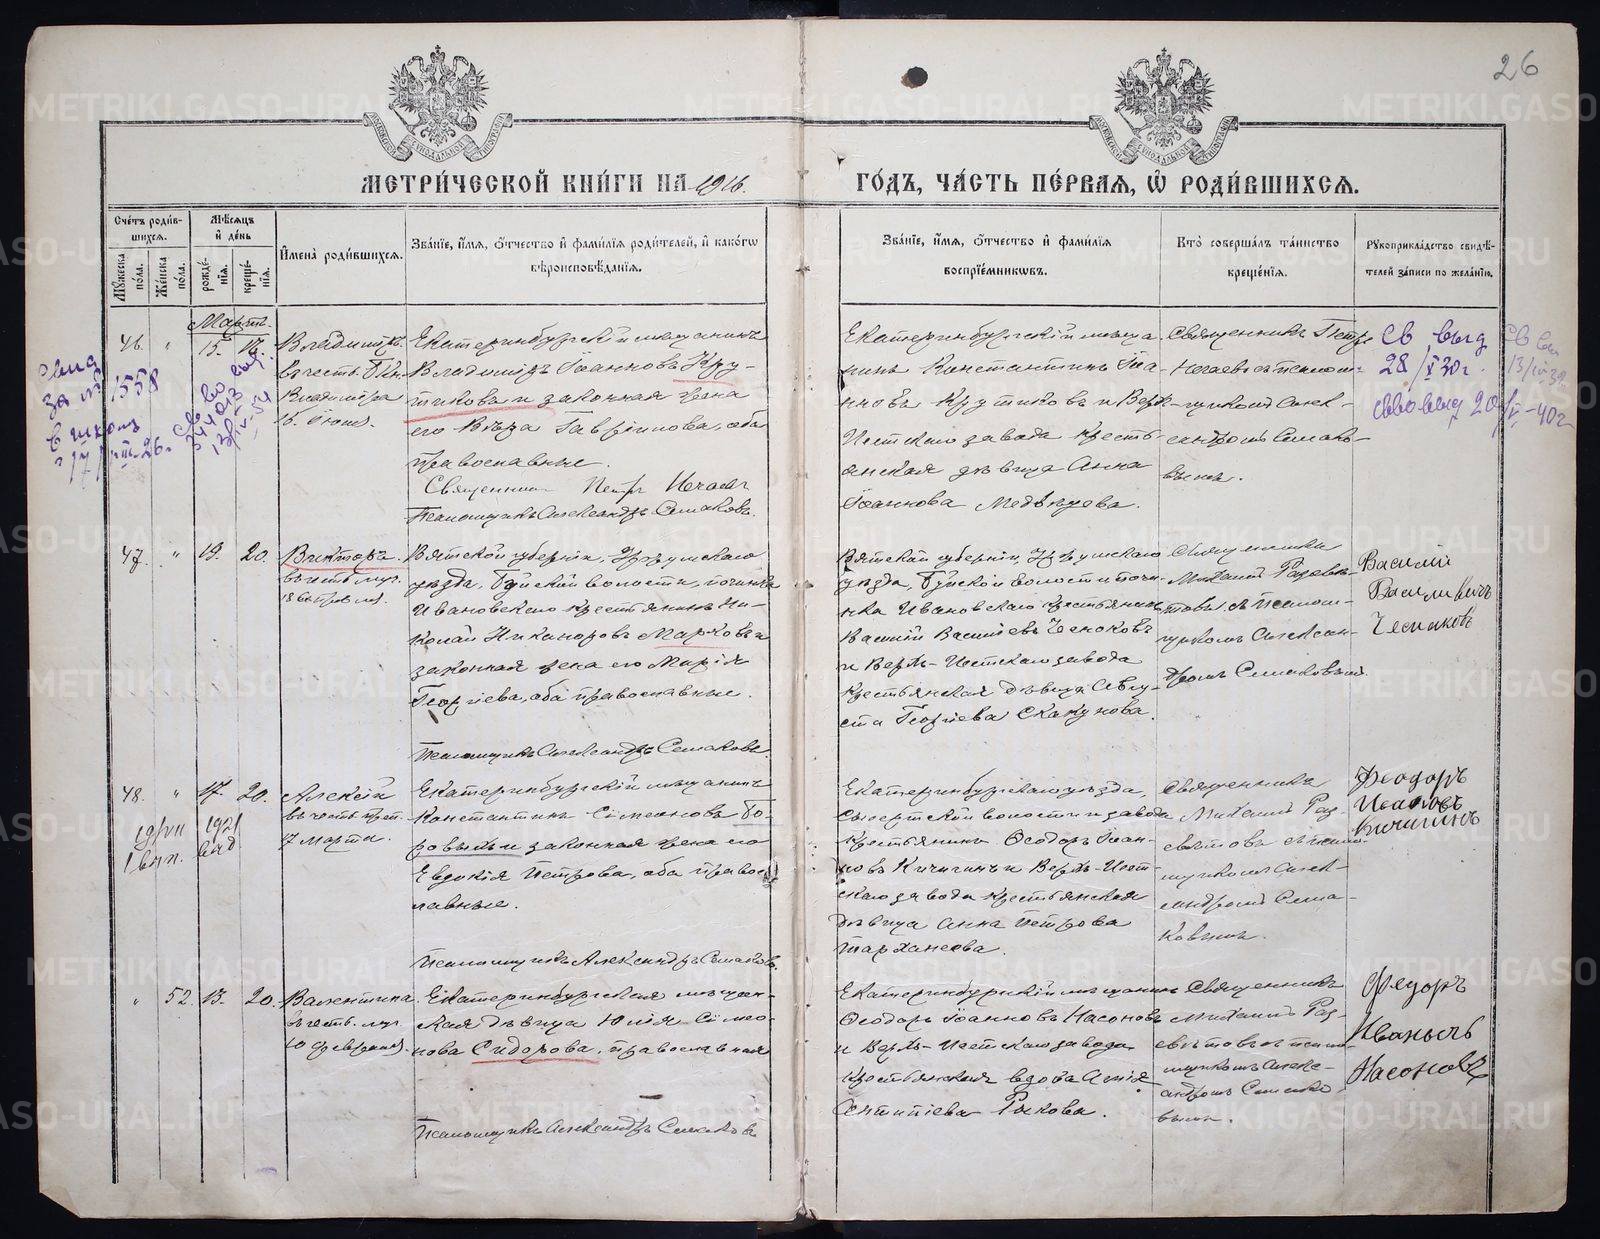 26
МЕТРИ́ЧЕСКОЙ КНИ́ГИ НА 1916.
ГО́ДЪ, ЧА́СТЬ ПЕ́РВАЯ, Ѿ РОДИ́ВШИХСЯ.
Сче́тъ роди́вшихся.
Мꙋ́жеска по́ла.
Же́нска по́ла.
Мѣ́сяцъ и҆ де́нь
рожде́нїя.
креще́нїя.
И҆мена̀ роди́вшихся.
Зва́нїе, и҆́мя, ѻ҆́тчество и҆ фами́лїя роди́телей, и҆ како́гѡ
вѣроисповѣ́данїя.
Зва́нїе, и҆́мя, ѻ҆́тчество и҆ фами́лїя
воспрїе́мникѡвъ.
Кто̀ соверша́лъ та́инство
креще́нїя.
Рꙋкоприкла́дство свидѣ́-
телей за́писи по жела́нїю.
Мартъ.
46. " 15. 16.
Владиміръ.
въ честь Бл. Кн.
Владиміра
15 Іюля.
Екатеринбургскій мѣщанинъ
Владиміръ Іоанновъ Кру-
тиковъ и законная жена
его Вѣра Гавріилова, оба
православные.
Священникъ Петръ Нечаевъ
Псаломщикъ Александръ Семаковъ.
Екатеринбургскій мѣща-
нинъ Константинъ Іоа-
нновъ Крутиковъ и Верх-
Исетскаго завода кресть-
янская дѣвица Анна
Іоаннова Медвѣдева.
Священникъ Петръ
Нечаевъ съ псалом-
щикомъ Алек-
сандромъ Семако-
вымъ.
1558
св выд
28/V 30г.
20/V-40г
47. " 19. 20.
Викторъ.
въ честь муч.
Вятской губерніи, Уржумскаго
уѣзда, Буйской волости, починка
Ивановскаго крестьянинъ Ни-
колай Никаноровъ Марковъ и
законная жена его Марія
Георгіева, оба православные.
Псаломщикъ Александръ Семаковъ.
Вятской губерніи, Уржумскаго
уѣзда, Буйской волости почи-
нка Ивановскаго крестьянинъ
Василій Васильевъ Чесноковъ
и Верхъ-Исетскаго завода
крестьянская дѣвица Авгу-
ста Георгіева Скакунова.
Священникъ
Михаилъ
съ псалом-
щикомъ Алексан-
дромъ Семаковымъ.
Василій
Васильевичъ
Чесноковъ
48. " 17. 20.
Алексій
въ честь преп.
17 марта.
1921
выд
Екатеринбургскій мѣщанинъ
Константинъ Симеоновъ Бо-
ровыхъ и законная жена его
Евдокія Петрова, оба право-
славные.
Псаломщикъ Александръ Семаковъ.
Екатеринбургскаго уѣзда,
Сысертской волости и завода
крестьянинъ Ѳеодоръ Іоан-
новъ Кичигинъ и Верхъ-Исет-
скаго завода крестьянская
дѣвица Анна Петрова
Тарханеева.
Священникъ
Михаилъ
съ псало-
мщикомъ Алек-
сандромъ Сема-
ковымъ.
Феодоръ
Ивановъ
Кичигинъ
" 52. 13. 20.
Валентина.
въ честь муч.
10 февраля.
Екатеринбургская мѣщан-
ская дѣвица Юлія Симео-
нова Сидорова, православная
Псаломщикъ Александръ Семаковъ
Екатеринбургскій мѣщанинъ
Ѳеодоръ Іоанновъ Насоновъ
и Верхъ-Исетскаго завода
крестьянская вдова
Антипіева Рякова.
Священникъ
Михаилъ
съ псало-
мщикомъ Алекс-
андромъ Семако-
вымъ.
Федоръ
Иванычъ
Насоновъ